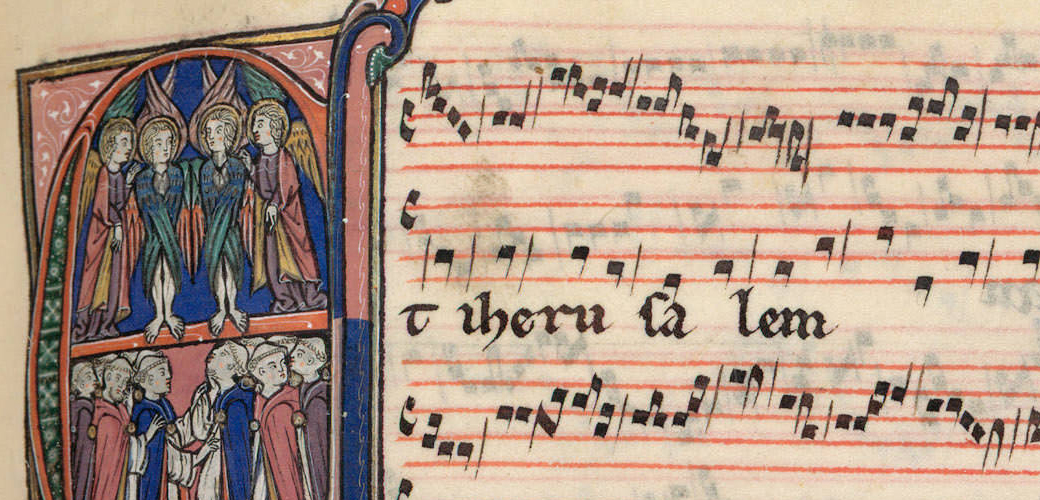 t iheru sa lem